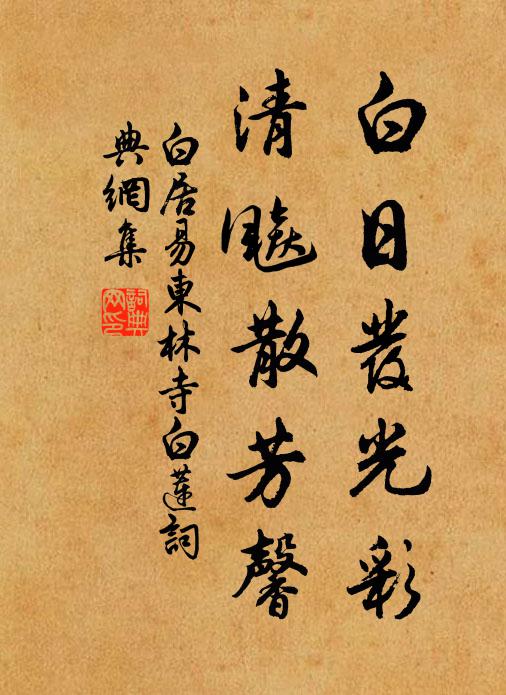 白日發光彩
清飈散芳馨
白居易東林寺白蓮詞
典網集
詞典網印